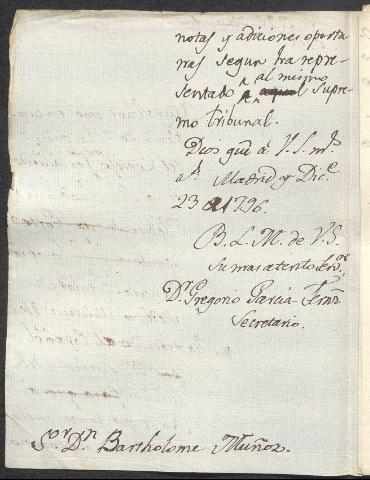 notas y adiciones oportu
nas segun ha repre-
sentado al mismo Supre-
mo tribunal.
Dios gue á V.S. ms.
as. Madrid y Dice.
23 de 1796.
B. L. M. de V.S.
su mas atento servor.
Dn. Gregorio Garcia Fernz
Secretario.
Sor. Dn. Bartholome Muñoz.